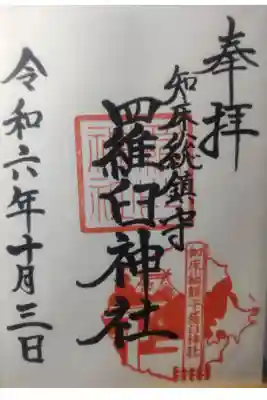 奉拝
知床総鎮守
羅臼神社
令和六年十月三日